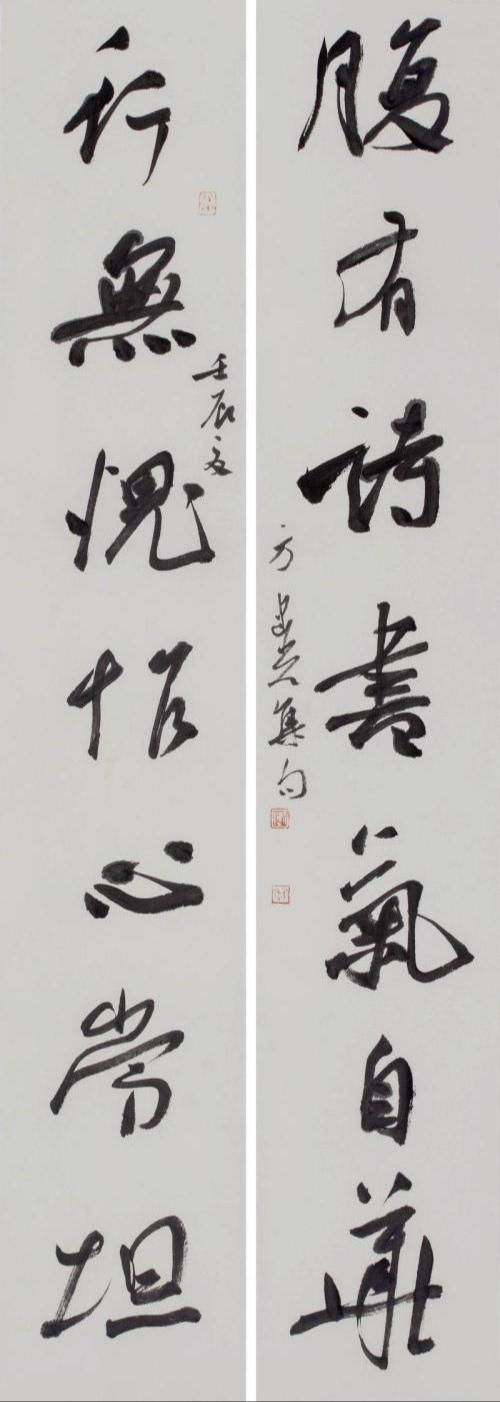 腹有詩書氣自華
方集句
壬辰夏
行無愧怍心常坦